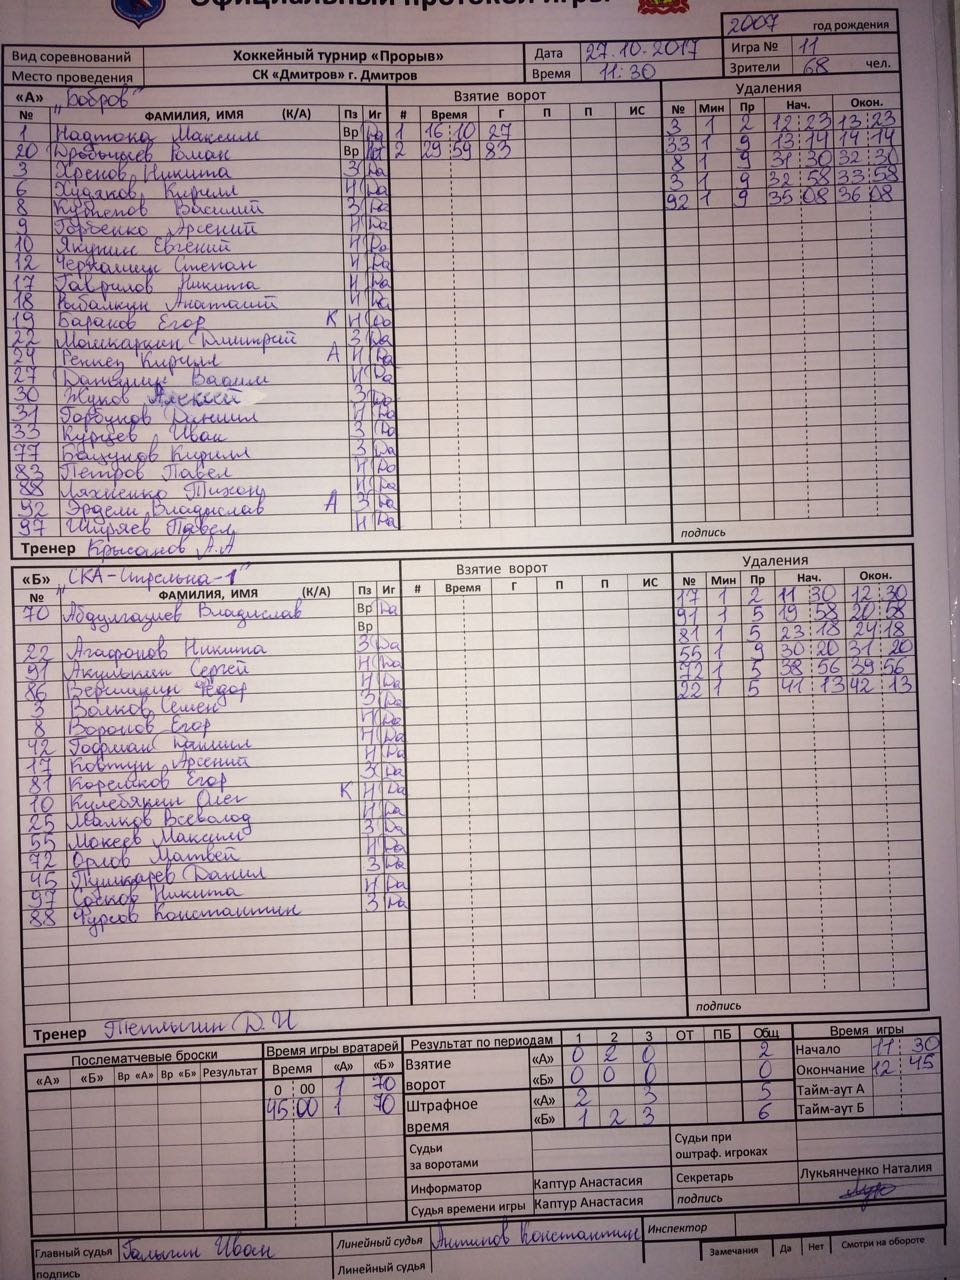 Официальный протокол игры
2007 год рождения
Вид соревнований Хоккейный турнир «Прорыв» Дата 27.10.2017 Игра № 11
Место проведения СК «Дмитров» г. Дмитров Время 11:30 Зрители 68 чел.
«А» "Бобров" Взятие ворот Удаления
№ ФАМИЛИЯ, ИМЯ (К/А) Пз Иг # Время Г П П ИС № Мин Пр Нач. Окон.
1 Надтока Максим Вр Да 1 16 10 27 3 1 2 12 23 13 23
20 Дробышев Роман Вр 2 29 59 83 33 1 9 13 14 14 14
3 Хренов Никита З Да 8 1 9 31 30 32 30
6 Худяков Кирилл Н Да 3 1 9 32 58 33 58
8 Василий З Да 92 1 9 35 08 36 08
9 Горбенко Арсений Н Да
10 Якунин Евгений Н Да
12 Степан Н Да
17 Гаврилов Никита Н Да
18 Рыбалкин Анатолий Н Да
19 Баранов Егор К Н Да
22 Мошкаркин Дмитрий З Да
24 Кирилл А Н Да
27 Вадим Н Да
30 Жуков Алексей З Да
31 Горбунов Даниил Н Да
33 Курцев Иван З Да
77 Бацунов Кирилл З Да
83 Петров Павел Н Да
88 Ляхненко Тихон Н Да
92 Эрдели Владислав А З Да
97 Ширяев Павел Н Да
Тренер Крысанов А.А
подпись
«Б» "СКА-Стрельна-1" Взятие ворот Удаления
№ ФАМИЛИЯ, ИМЯ (К/А) Пз Иг # Время Г П П ИС № Мин Пр Нач. Окон.
70 Абдулгазиев Владислав Вр Да 17 1 2 11 30 12 30
Вр 91 1 5 19 58 20 58
22 Агафонов Никита З Да 81 1 5 23 18 24 18
91 Акулинин Сергей Н Да 55 1 9 30 20 31 20
86 Вершинин Фёдор Н Да 72 1 5 38 56 39 56
3 Волков Семен З Да 22 1 5 41 13 42 13
8 Воронов Егор Н Да
42 Гофман Даниил Н Да
17 Ковтун Арсений Н Да
81 Егор З Да
10 Кулебякин Олег К Н Да
25 Малков Всеволод Н Да
55 Мокеев Максим З Да
72 Орлов Матвей Н Да
45 Пушкарев Данил З Да
97 Никита Н Да
88 Фурсов Константин З Да
подпись
Тренер Теплыгин Д.И
Послематчевые броски Время игры вратарей Результат по периодам 1 2 3 ОТ ПБ Общ Время игры
«А» «Б» Вр «А» Вр «Б» Результат Время «А» «Б» Взятие ворот «А» 0 2 0 2 Начало 11 30
0 00 1 70 «Б» 0 0 0 0 Окончание 12 45
45 00 1 70 Штрафное время «А» 2 3 5 Тайм-аут А
«Б» 1 2 3 6 Тайм-аут Б
Судьи за воротами Судьи при оштраф. игроках
Информатор Каптур Анастасия Секретарь Лукьянченко Наталия
Судья времени игры Каптур Анастасия подпись
Главный судья Галыгин Иван Линейный судья Антипов Константин Инспектор
подпись Линейный судья Замечания Да Нет Смотри на обороте